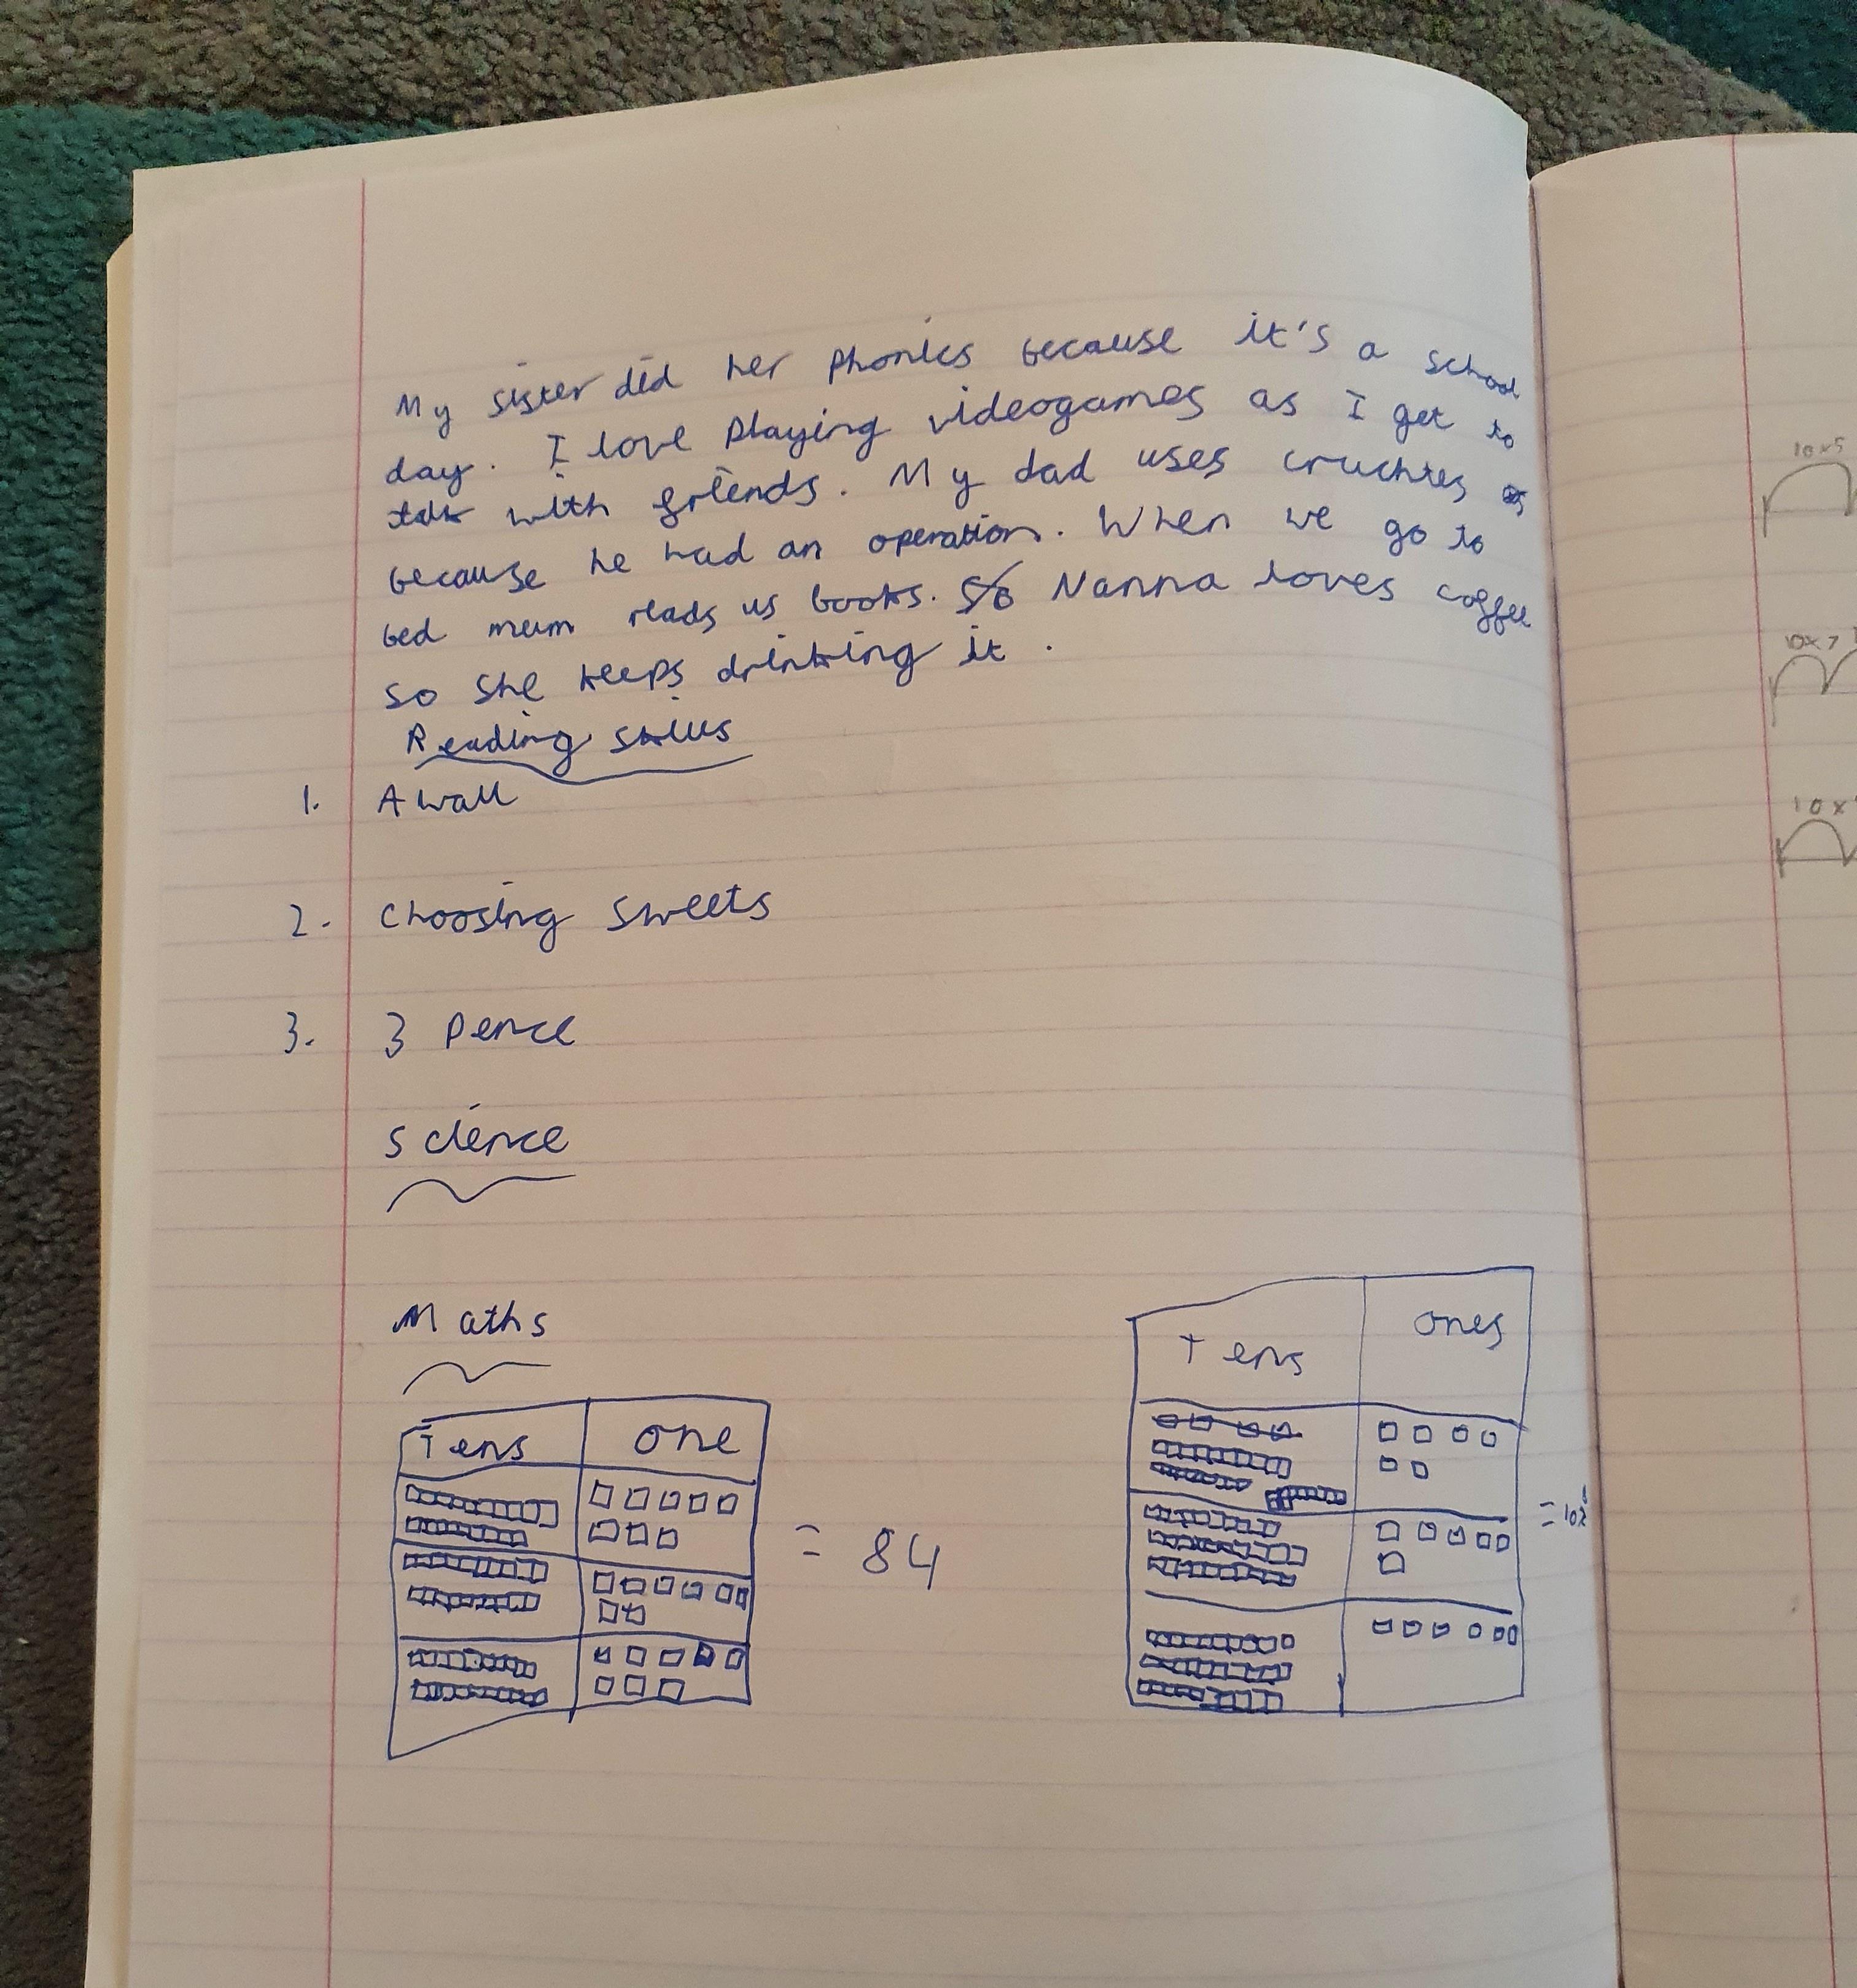 My sister did her Phonics because it's a school
day. I love playing videogames as I get to
talk with friends. My dad uses cruchtes
because he had an operation. When we go to
bed mum reads us books. So Nanna loves coffee
so she keeps drinking it.
Reading skills
1. A wall
2. Choosing sweets
3. 3 Pence
Science
Maths
Tens one
= 84
Tens ones
10x5
10x7
10x